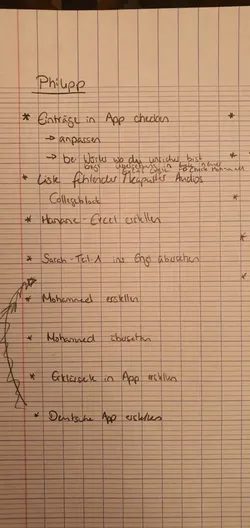 Philipp
* Einträge in App checken
→ anpassen
→ bei Wörter wo du unsicher bist
* Liste fehlender Audios
Collegeblock
* Hanane Excel erstellen
* Sarah Teil 1 ins Engl. übersetzen
* Mohammed erstellen
* Mohammed übersetzen
* Erklärseite in App erstellen
* Deutsche App erstellen